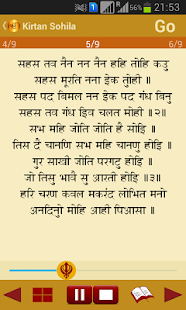 21:53
Kirtan Sohila
Go
4/9 5/9 6/9
सहस तव नैन नन नैन हहि तोहि कउ
सहस मूरति नना इेक तोुही ॥
सहस पद बिमल नन इेक पद गंध बिनु
सहस तव गंध इिव चलत मोही ॥२॥
सभ महि जोति जोति है सोइि ॥
तिस दै चानणि सभ महि चानणु होइि ॥
गुर साखी जोति परगटु होइि ॥
जो तिसु भावै सु आरती होइि ॥३॥
हरि चरण कवल मकरंद लोभित मनो
अनदिनोु मोहि आही पिआसा ॥